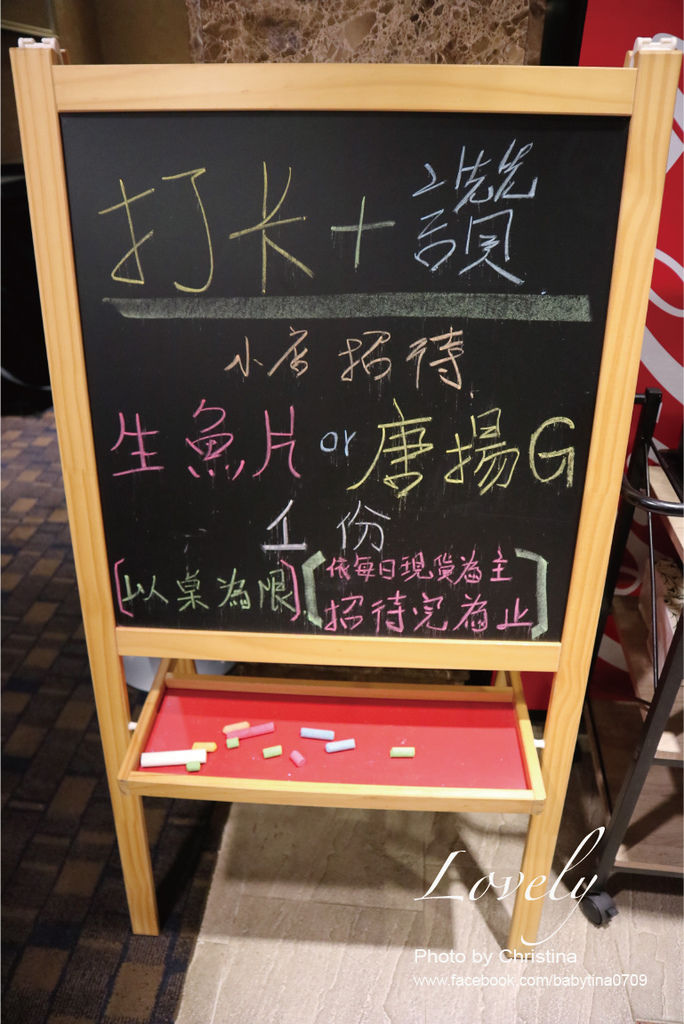 打卡+讚
小店招待
生魚片 or 唐揚G
1份
(以桌為限) [依每日現貨為主
招待完為止]
Lovely
Photo by Christina
www.facebook.com/babytina0709